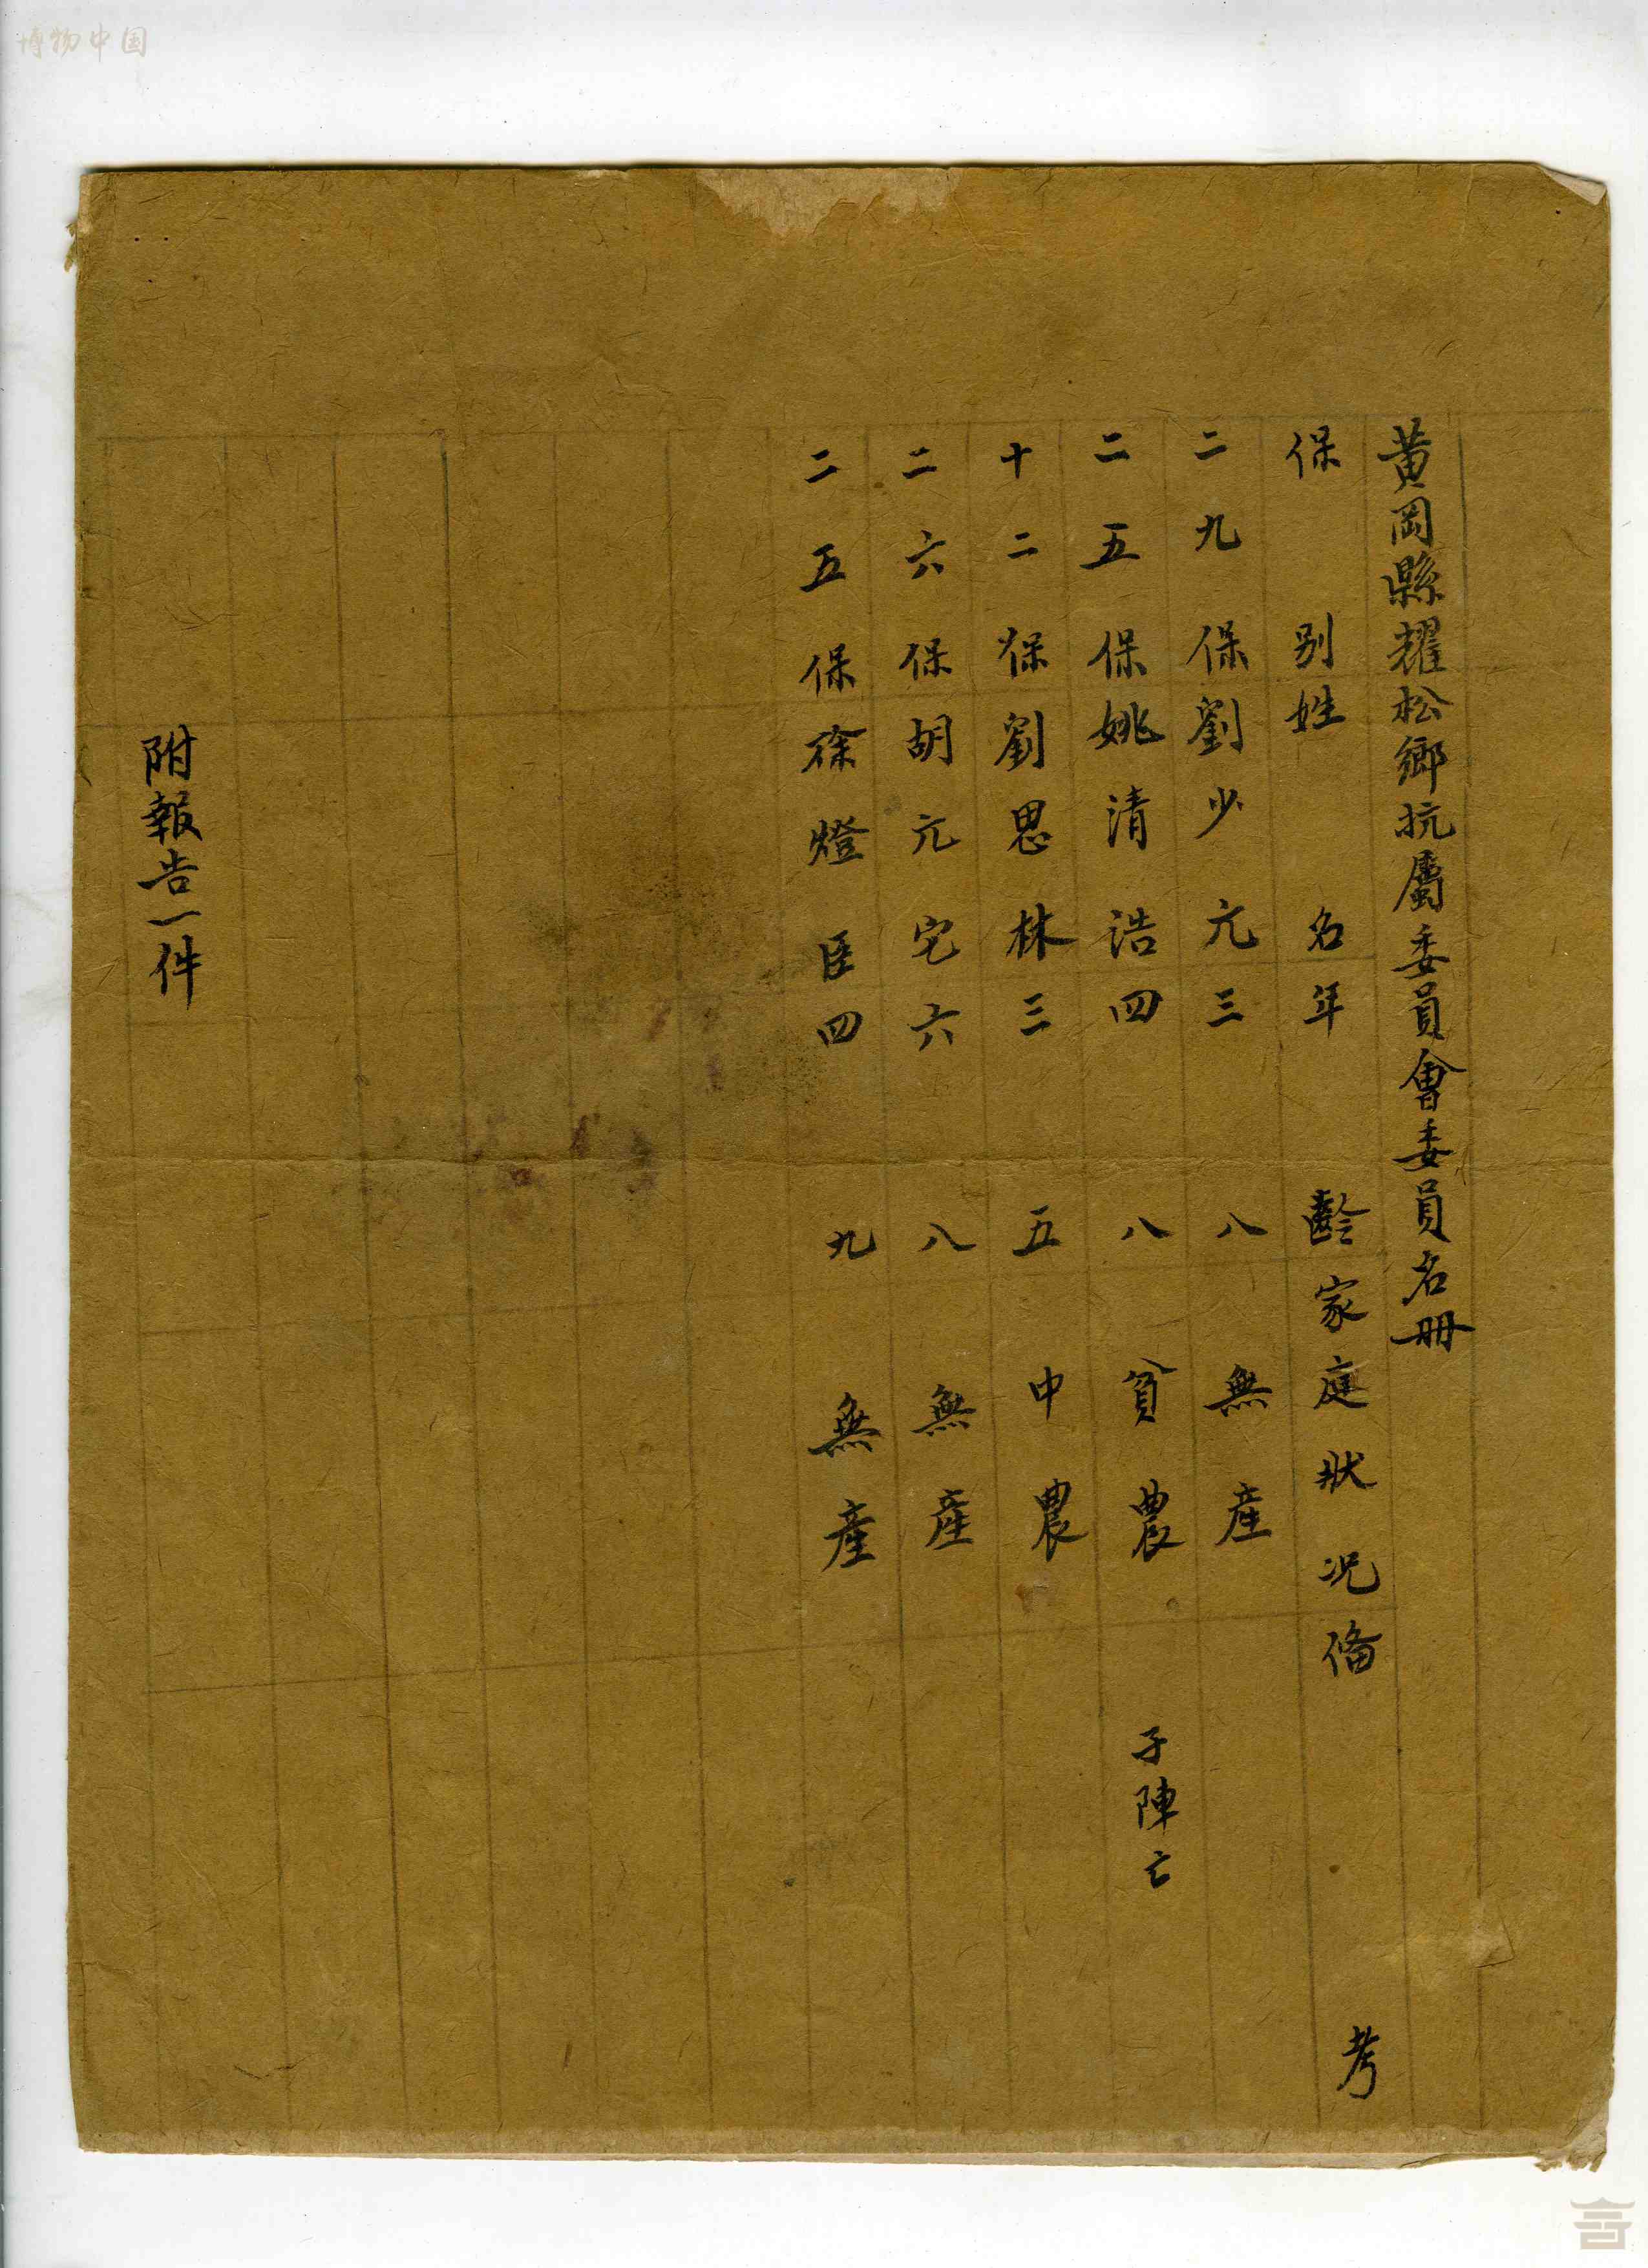 黃岡縣耀松鄉抗屬委員會委員名冊
保別姓名年齡家庭狀況備考
二九保劉少亢三八無產
二五保姚清浩四八貧農子陣亡
十二保劉思林三五中農
二六保胡亢宅六八無產
二五保徐燈臣四九無產
附報告一件
博物中国